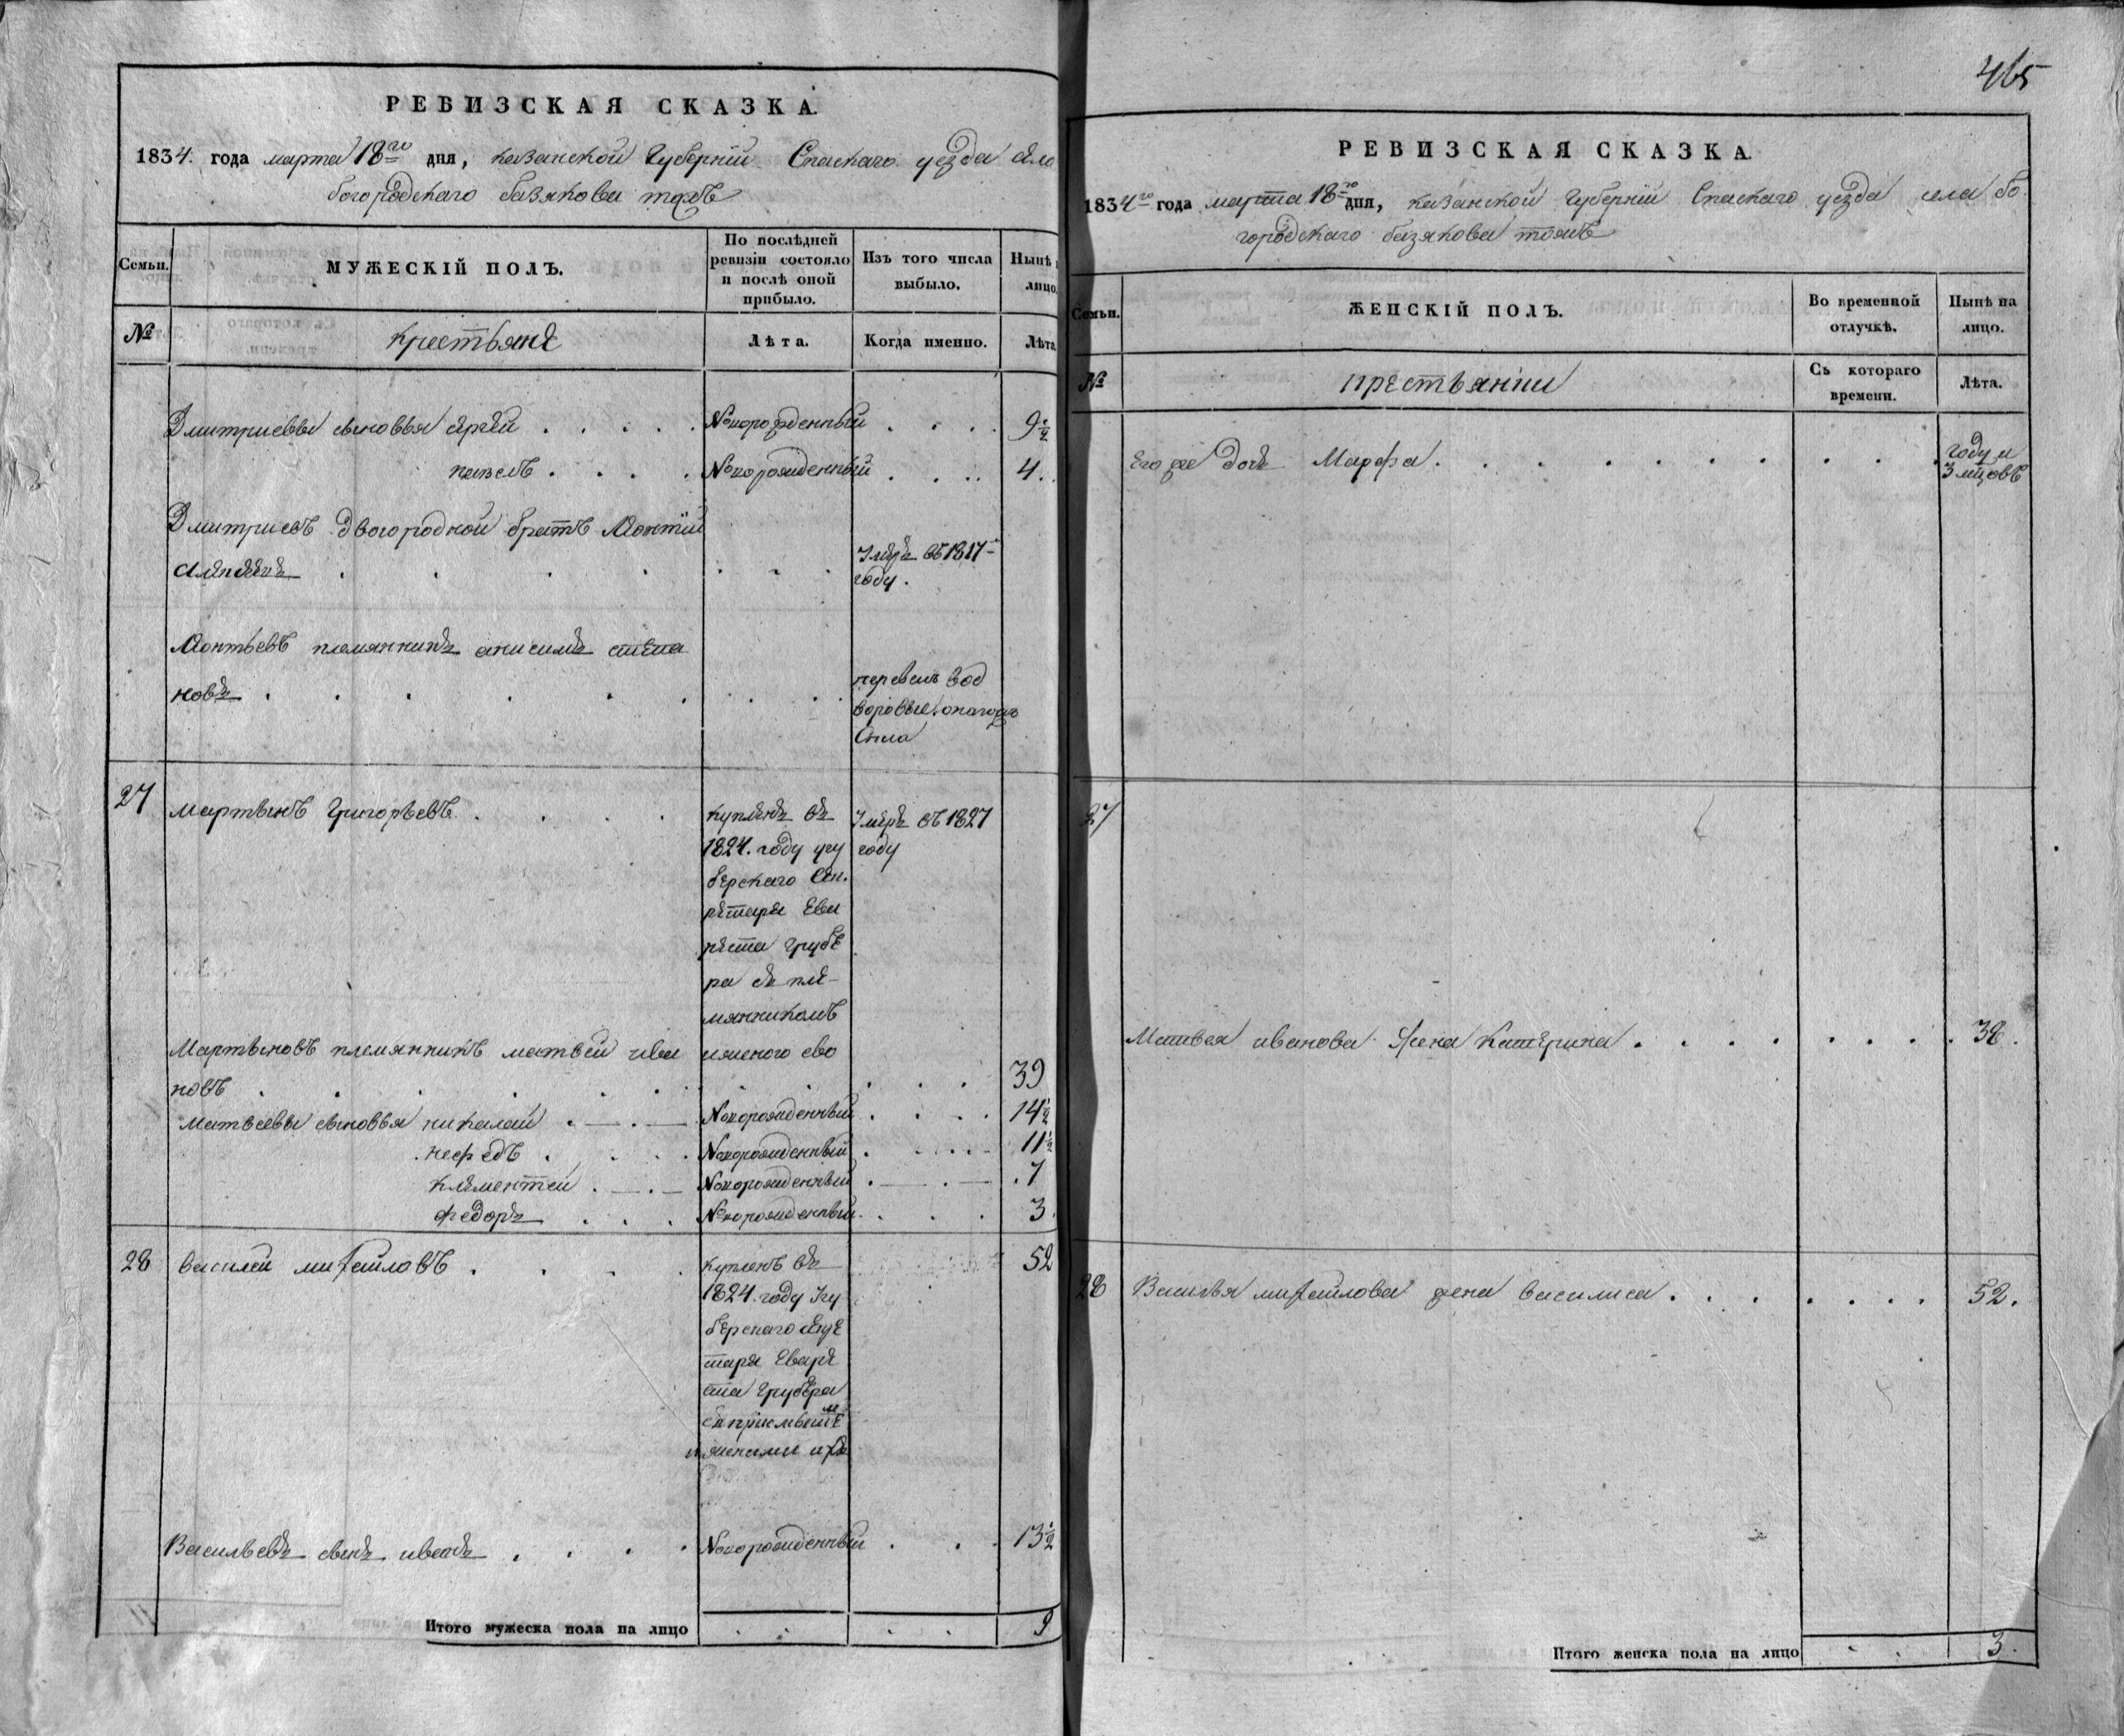 РЕВИЗСКАЯ СКАЗКА.
1834. года марта 18го дня, казанской Губерніи Спаскаго уезда село
богородскаго базякова тожъ
Семьи.
МУЖЕСКІЙ ПОЛЪ.
По послѣдней
ревизіи состояло
и послѣ оной
прибыло.
Изъ того числа
выбыло.
Нынѣ
лицо.
№
крестьяне
Лѣта.
Когда именно.
Лѣта
Дмитриевы сыновья . . . . . Новорожденный . . . . 9
павелъ . . . . Новорожденный . . . . 4 . .
Дмитриевъ двоюродной братъ Леонтій
Алексѣевъ . . . . . . . Умеръ въ 1817
году .
Леонтьевъ племянникъ анисимъ степа
новъ . . . . . . . . переведенъ вод
воровые
села
27 Мартынъ Григорьевъ . . . . купленъ въ Умеръ въ 1827
1824. году угу году
берскаго сек.
ретаря Ева
реста Грубе
ра съ пле-
мянникомъ
Мартыновъ племянникъ матвей ива иженою ево
новъ . . . . . . . . . . 39
Матвеевы сыновья николай . — . — Новорожденный . . . . 14 1/2
нефедъ . . . . Новорожденный . . . . 11 1/2
клементей . — . — Новорожденный . — . — . 7
федоръ . . . Новорожденный . . . 3
28 василей михайловъ . . . . купленъ въ 52
1824. году Угу
берскаго секре
таря Еваре
ста Грубера
и женами ихъ
Васильевъ сынъ иванъ . . . . Новорожденный . . . 13 1/2
Итого мужеска пола на лицо . . . . 9
465
РЕВИЗСКАЯ СКАЗКА.
1834го года марта 18го дня, казанской Губерніи Спаскаго уезда села бо
городскаго базякова тожъ
Семьи.
ЖЕНСКІЙ ПОЛЪ.
Во временной
отлучкѣ.
Нынѣ на
лицо.
№
крестьянки
Съ котораго
времени.
Лѣта.
Его же дочь Марфа . . . . . . . . . году и
3 мцовъ
27
Матвея иванова жена Катерина . . . . . . . . 38 .
28 Василья михайлова жена василиса . . . . . . . 52 .
Итого женска пола на лицо . . 3 .